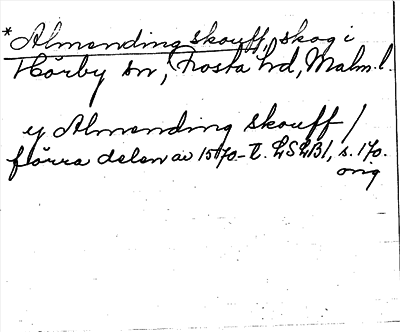 *Almending skouff, skog i
Hörby sn, Frosta hd, Malm. l.
ej Almending skouff /
förra delen av 1570-t. LSLB1, s. 170.
ong